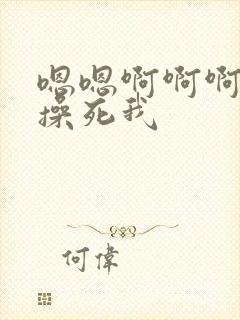 嗯嗯啊啊啊
操死我
何偉